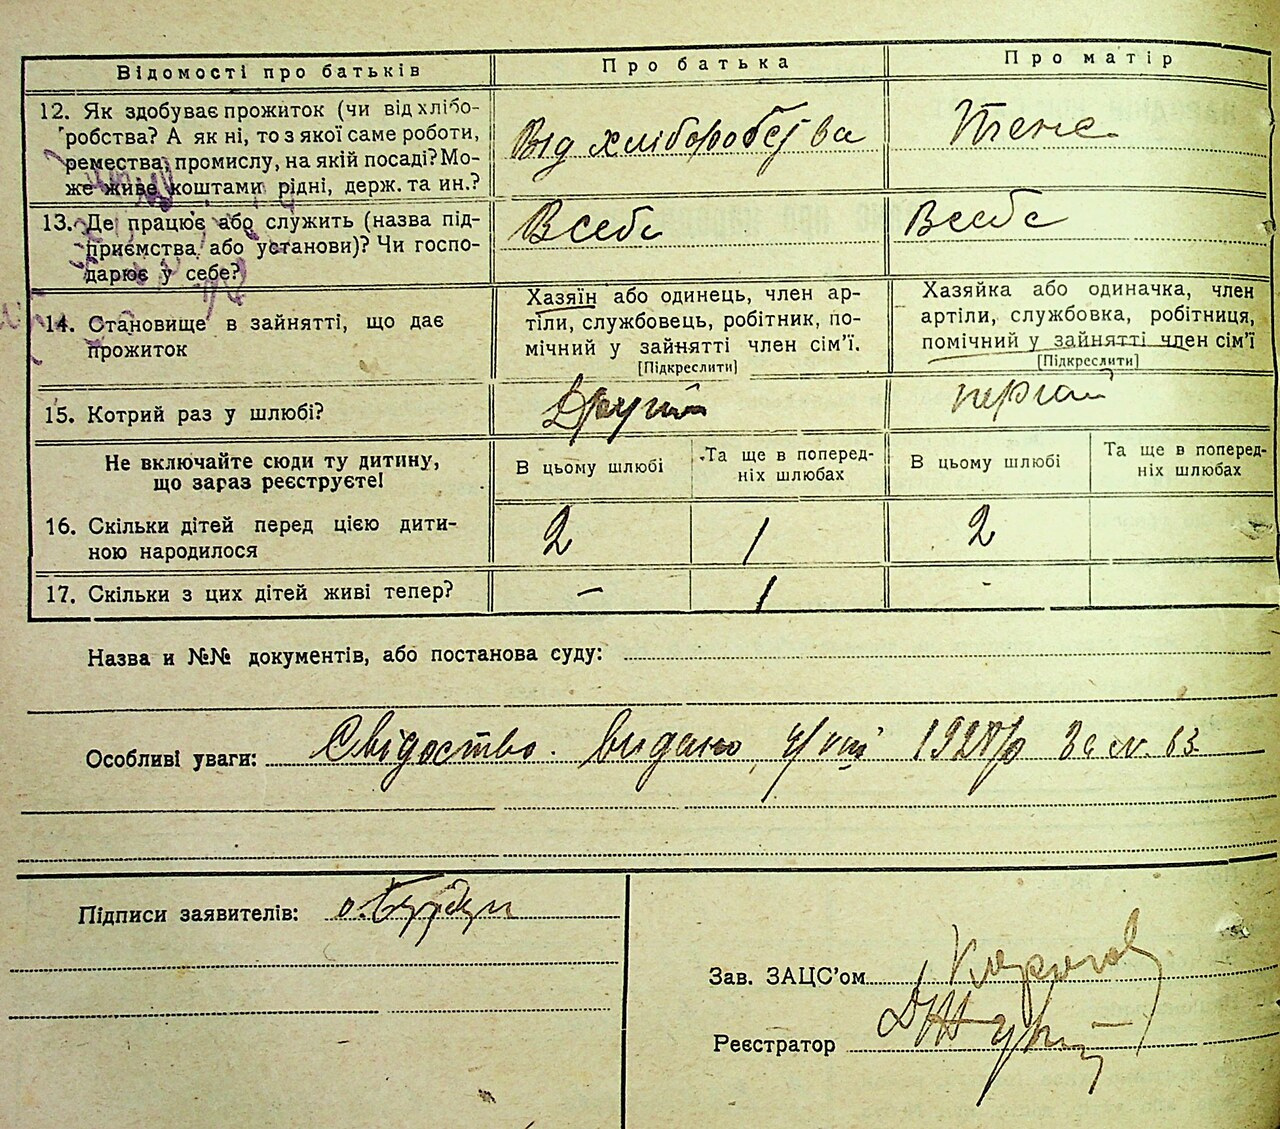 Відомості про батьків
Про батька
Про матір
12. Як здобуває прожиток (чи від хлібо-
робства? А як ні, то з якої саме роботи,
ремества, промислу, на якій посаді? Мо-
же живе коштами рідні, держ. та ин.?
Від хліборобства
Теж
13. Де працює або служить (назва під-
приємства або установи)? Чи госпо-
дарює у себе?
В себе
В себе
14. Становище в зайнятті, що дає
прожиток
Хазяїн або одинець, член ар-
тіли, службовець, робітник, по-
мічний у зайнятті член сім'ї.
[Підкреслити]
Хазяйка або одиначка, член
артіли, службовка, робітниця,
помічний у зайнятті член сім'ї
[Підкреслити]
15. Котрий раз у шлюбі?
Другий
перший
Не включайте сюди ту дитину,
що зараз реєструєте!
В цьому шлюбі
Та ще в поперед-
ніх шлюбах
В цьому шлюбі
Та ще в поперед-
ніх шлюбах
16. Скільки дітей перед цією дити-
ною народилося
2
1
2
17. Скільки з цих дітей живі тепер?
–
1
-
Назва и №№ документів, або постанова суду:
Особливі уваги: Свідоство видано За №. 63
Підписи заявителів:
Зав. ЗАЦС'ом
Реєстратор